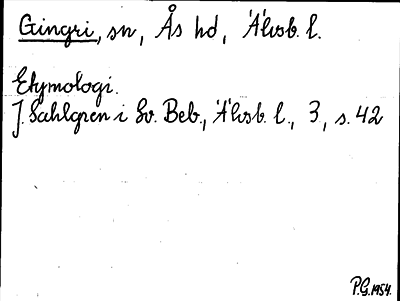 Gingri, sn, Ås hd, Älvsb. l.
Etymologi.
J. Sahlgren i Sv. Beb., Älvsb. l., 3, s. 42
P.G. 1954.